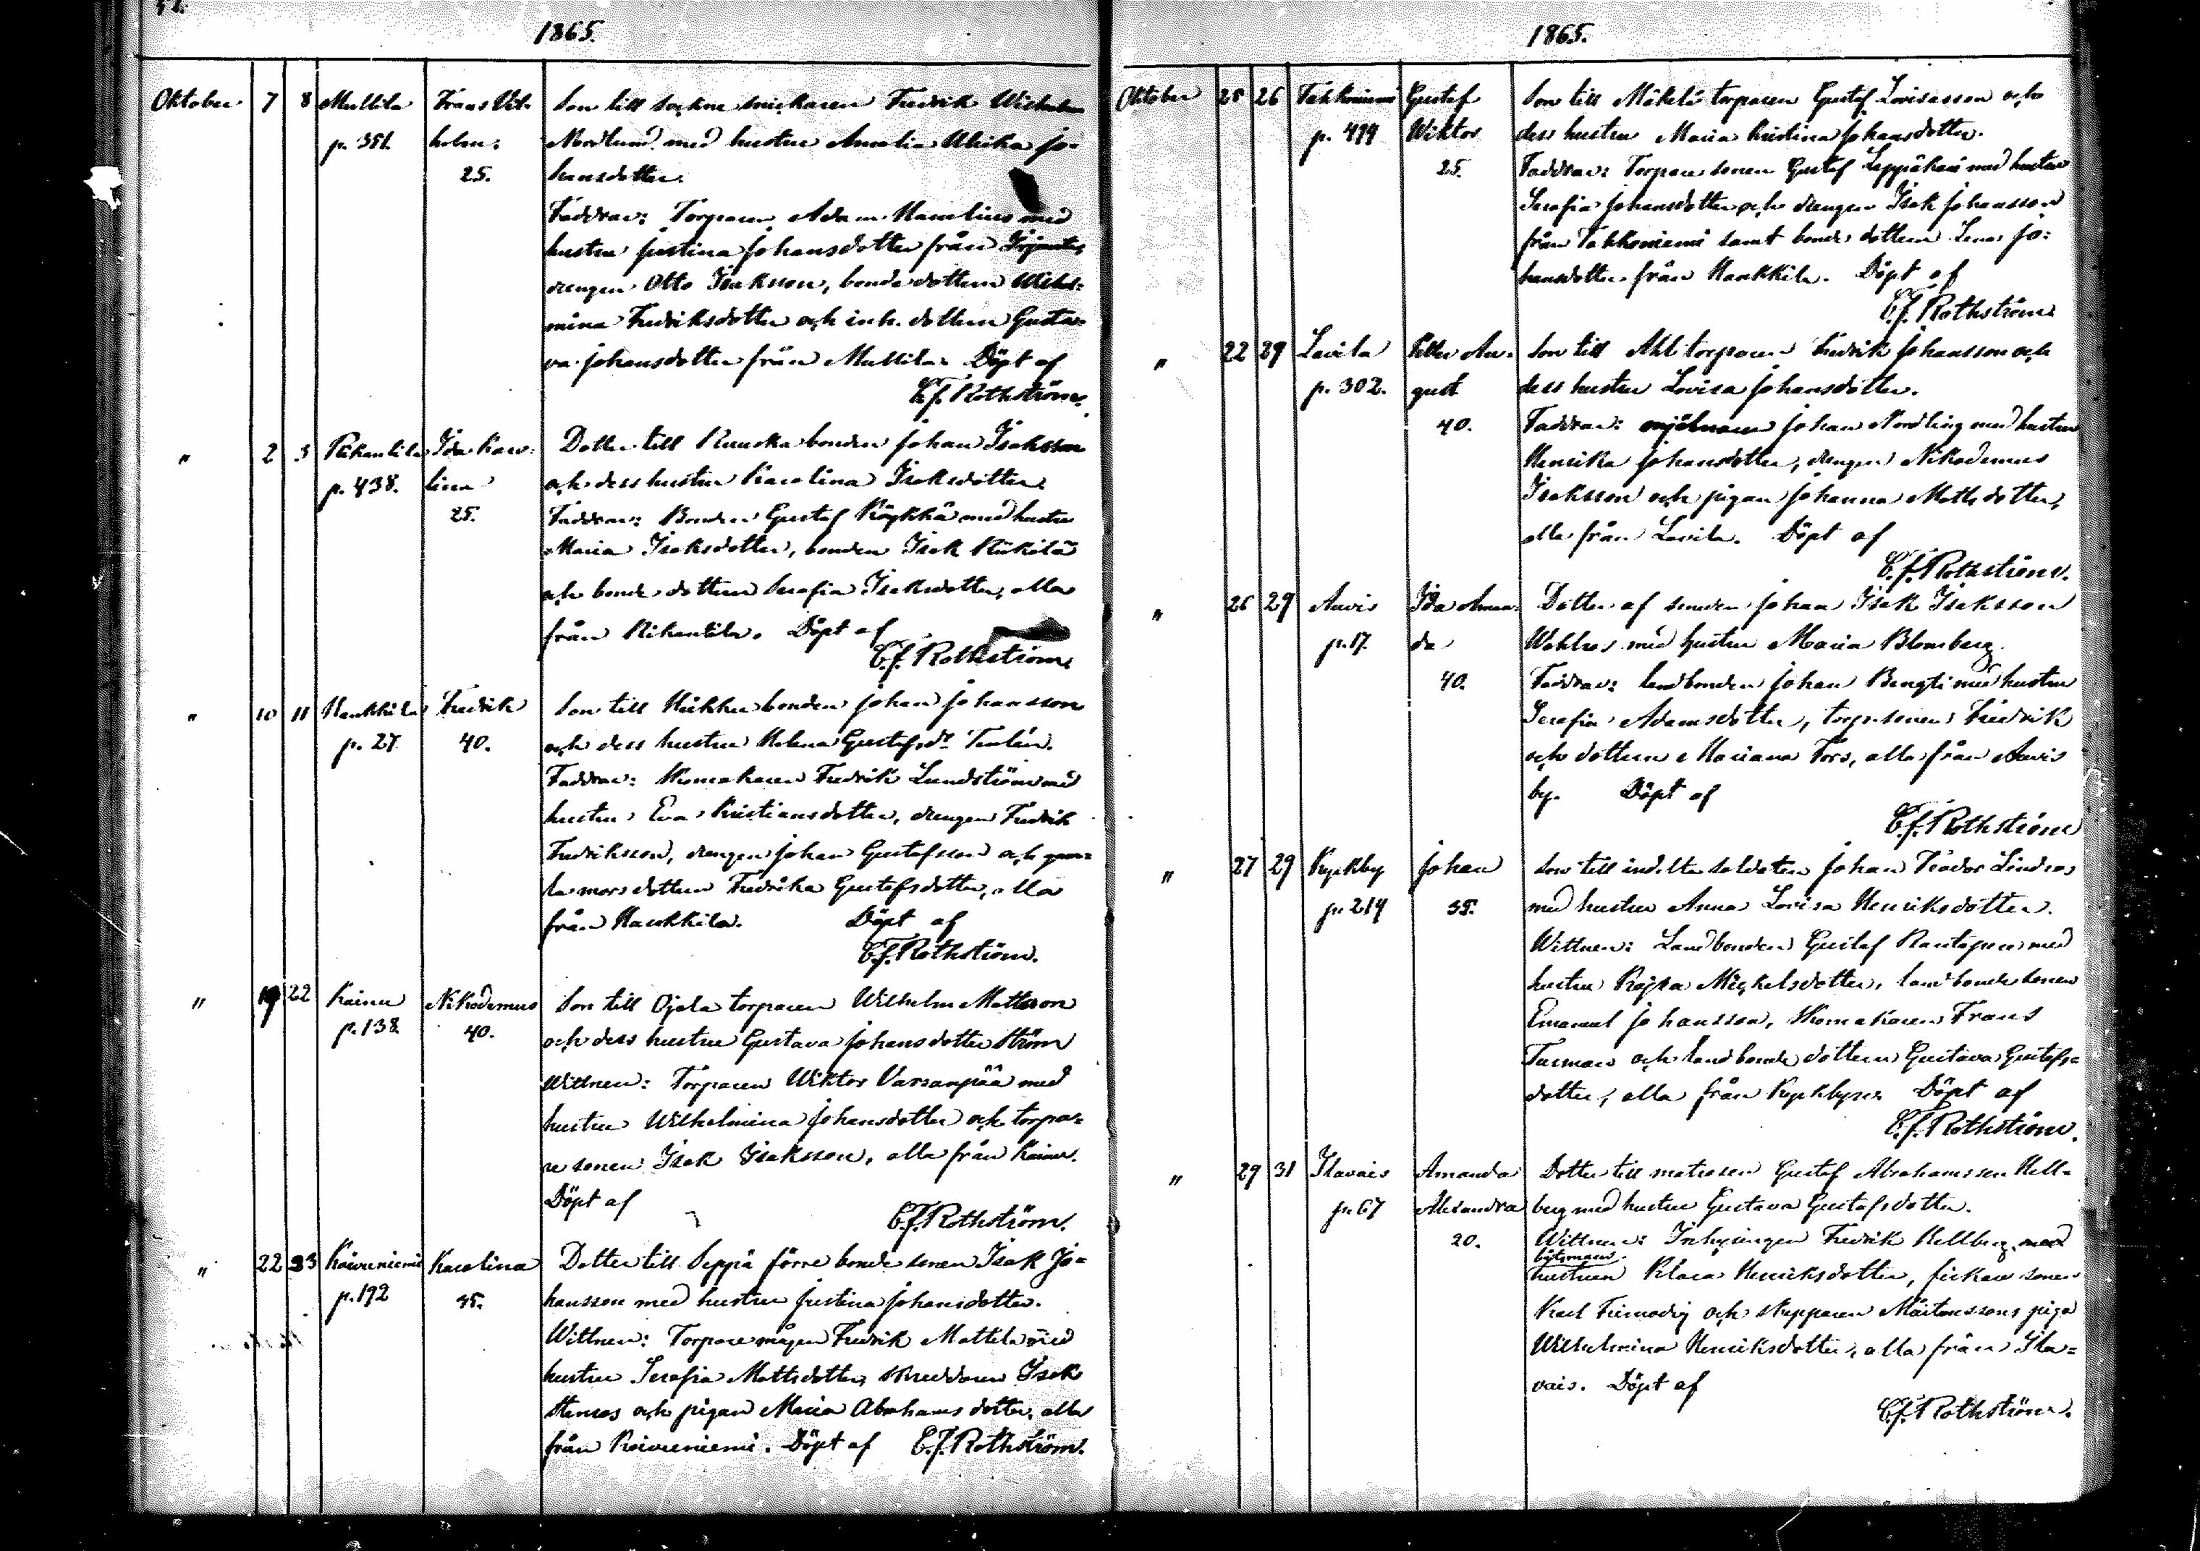 1865.
Oktober 7 8 Mullila Frans Wil- Son till socknesnickaren Fredrik Wilhelm
p. 351. helm: Nordlund med hustru Amalia Ulrika Jo-
25. hansdotter.
Faddrar: Torparen Adam Hamlius med
hustru Justina Johansdotter från
drengen Otto Isaksson, bondedottern Wilhel-
mina Fredriksdotter och inh. dottern Gusta-
va Johansdotter från Mullila. Döpt af
C.f. Rothström.
" 2 3 Rikantila Ida Karo- Dotter till Ruuska bonden Johan Isaksson
p. 438. lina och dess hustru Karolina Isaksdotter.
25. Faddrar: Bonden Gustaf Röykkä med hustru
Maria Isaksdotter, bonden Isak
och bonde dottern Serafia Isaksdotter, alla
från Rikantila. Döpt af
C.f. Rothström.
" 10 11 Hankkila Fredrik Son till bonden Johan Johansson
p. 27. 40. och dess hustru Helena Gustafsdr Tenlén.
Faddrar: Skomakaren Fredrik Lundström med
hustru Eva Kristiansdotter, drengen Fredrik
Fredriksson, drengen Johan Gustafsson och gam-
la mors dottern Fredrika Gustafsdotter, alla
från Hankkila. Döpt af
C.f. Rothström.
" 19 22 Kainu Nikodemus Son till Ojala torparen Wilhelm Mattsson
p. 138 40. och dess hustru Gustava Johansdotter Ström
Wittnen: Torparen Wiktor Varsanpää med
hustru Wilhelmina Johansdotter och torpa-
re sonen Isak Isaksson, alla från Kainu.
Döpt af
C.f. Rothström.
" 22 23 Koivuniemi Karolina Dotter till Seppä förre bonde sonen Isak Jo-
p. 192 35. hansson med hustru Justina Johansdotter.
Wittnen: Torparemågen Fredrik Mattila med
hustru Serafia Mattsdotter, skreddaren Isak
Stenros och pigan Maria Abrahamsdotter, alla
från Koivuniemi. Döpt af C.f. Rothström.
1865.
Oktober 25 26 Takkoniemi Gustaf Son till Mäkelä torparen Gustaf Lovisasson och
p. 499 Wiktor dess hustru Maria Kristina Johansdotter.
25. Faddrar: Torpare sonen Gustaf Leppäkari med hustru
Serafia Johansdotter och drengen Isak Johansson
från Takkoniemi samt bonde dottern Lena Jo-
hansdotter från Hankkila. Döpt af
C.f. Rothström
" 22 29 Lavila Kalle Au- Son till Ahl torparen Fredrik Johansson och
p. 302. gust dess hustru Lovisa Johansdotter.
40. Faddrar: mjölnaren Johan Nordling med hustru
Henrika Johansdotter, drengen Nikodemus
Isaksson och pigan Johanna Mattsdotter,
alla från Lavila. Döpt af
C.f. Rothström.
" 26 29 Auvis Ida Aman- Dotter af smeden Johan Isak Isaksson
p. 17. da Wahlros med hustru Maria Blomberg.
40. Faddrar: landbonden Johan Bengti med hustru
Serafia Adamsdotter, torp. sonen Fredrik
och dottern Mariana Fors, alla från Auvis
by. Döpt af
C.f. Rothström
" 27 29 Kyrkby Johan Son till indelta soldaten Johan Teodor Lindros
p. 219 35. med hustru Anna Lovisa Henriksdotter.
Wittnen: Landbonden Gustaf Rantapere med
hustru Kajsa Michelsdotter, landbonde sonen
Emanuel Johansson, skomakaren Frans
Tasman och landbonde dottern Gustava Gustafs-
dotter, alla från Kyrkbyn. Döpt af
C.f. Rothström.
" 29 31 Ilavais Amanda Dotter till matrosen Gustaf Abrahamsson Hell-
p. 67 Alexandra berg med hustru Gustava Gustafsdotter.
20. Wittnen: Inhysingen Fredrik Hellberg, med
båtsmans
hustrun Klara Henriksdotter, fiskare sonen
Karl Fernodig och skepparen Mårtenssons piga
Wilhelmina Henriksdotter, alla från Ila-
vais. Döpt af
C.f. Rothström.